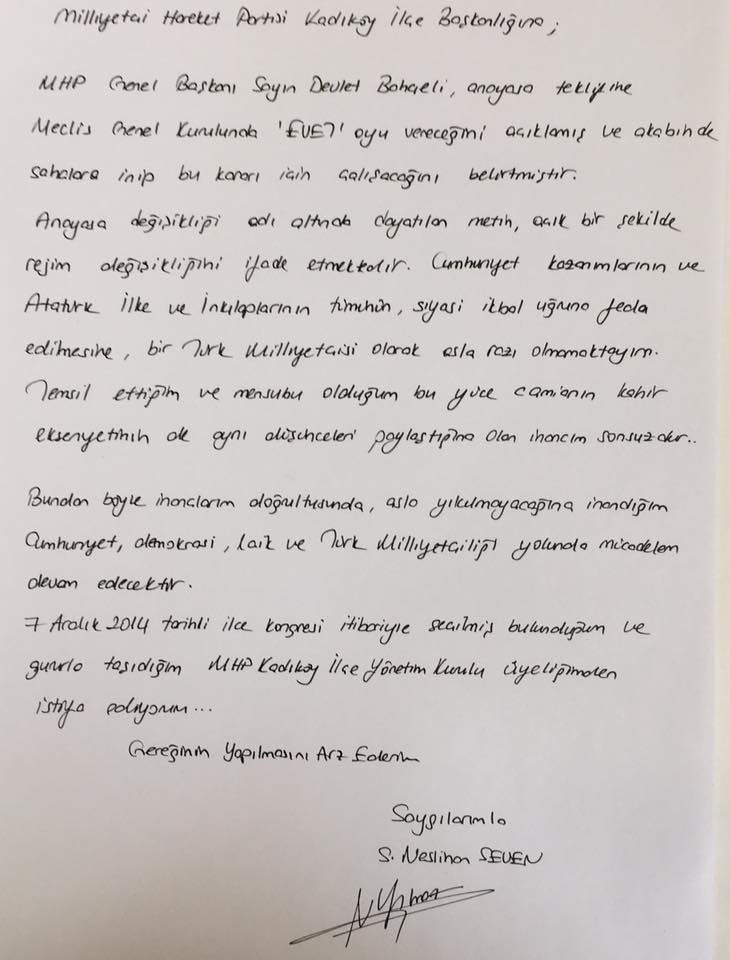 Milliyetçi Hareket Partisi Kadıköy İlçe Başkanlığına;
MHP Genel Başkanı Sayın Devlet Bahçeli, anayasa teklifine
Meclis Genel Kurulunda 'EVET' oyu vereceğini açıklamış ve akabinde
sahalara inip bu kararı için çalışacağını belirtmiştir.
Anayasa değişikliği adı altında dayatılan metin, açık bir şekilde
rejim değişikliğini ifade etmektedir. Cumhuriyet kazanımlarının ve
Atatürk İlke ve İnkılaplarının tümünün, siyasi ikbal uğruna feda
edilmesine, bir Türk Milliyetçisi olarak asla razı olmamaktayım.
Temsil ettiğim ve mensubu olduğum bu yüce camianın kahir
ekseriyetinin de aynı düşünceleri paylaştığına olan inancım sonsuzdur..
Bundan böyle inançlarım doğrultusunda, asla yıkılmayacağına inandığım
Cumhuriyet, demokrasi, laik ve Türk Milliyetçiliği yolunda mücadelem
devam edecektir.
7 Aralık 2014 tarihli ilçe kongresi itibariyle seçilmiş bulunduğum ve
gururla taşıdığım MHP Kadıköy İlçe Yönetim Kurulu üyeliğimden
istifa ediyorum...
Gereğinin Yapılmasını Arz Ederim
Saygılarımla
S. Neslihan SEVEN